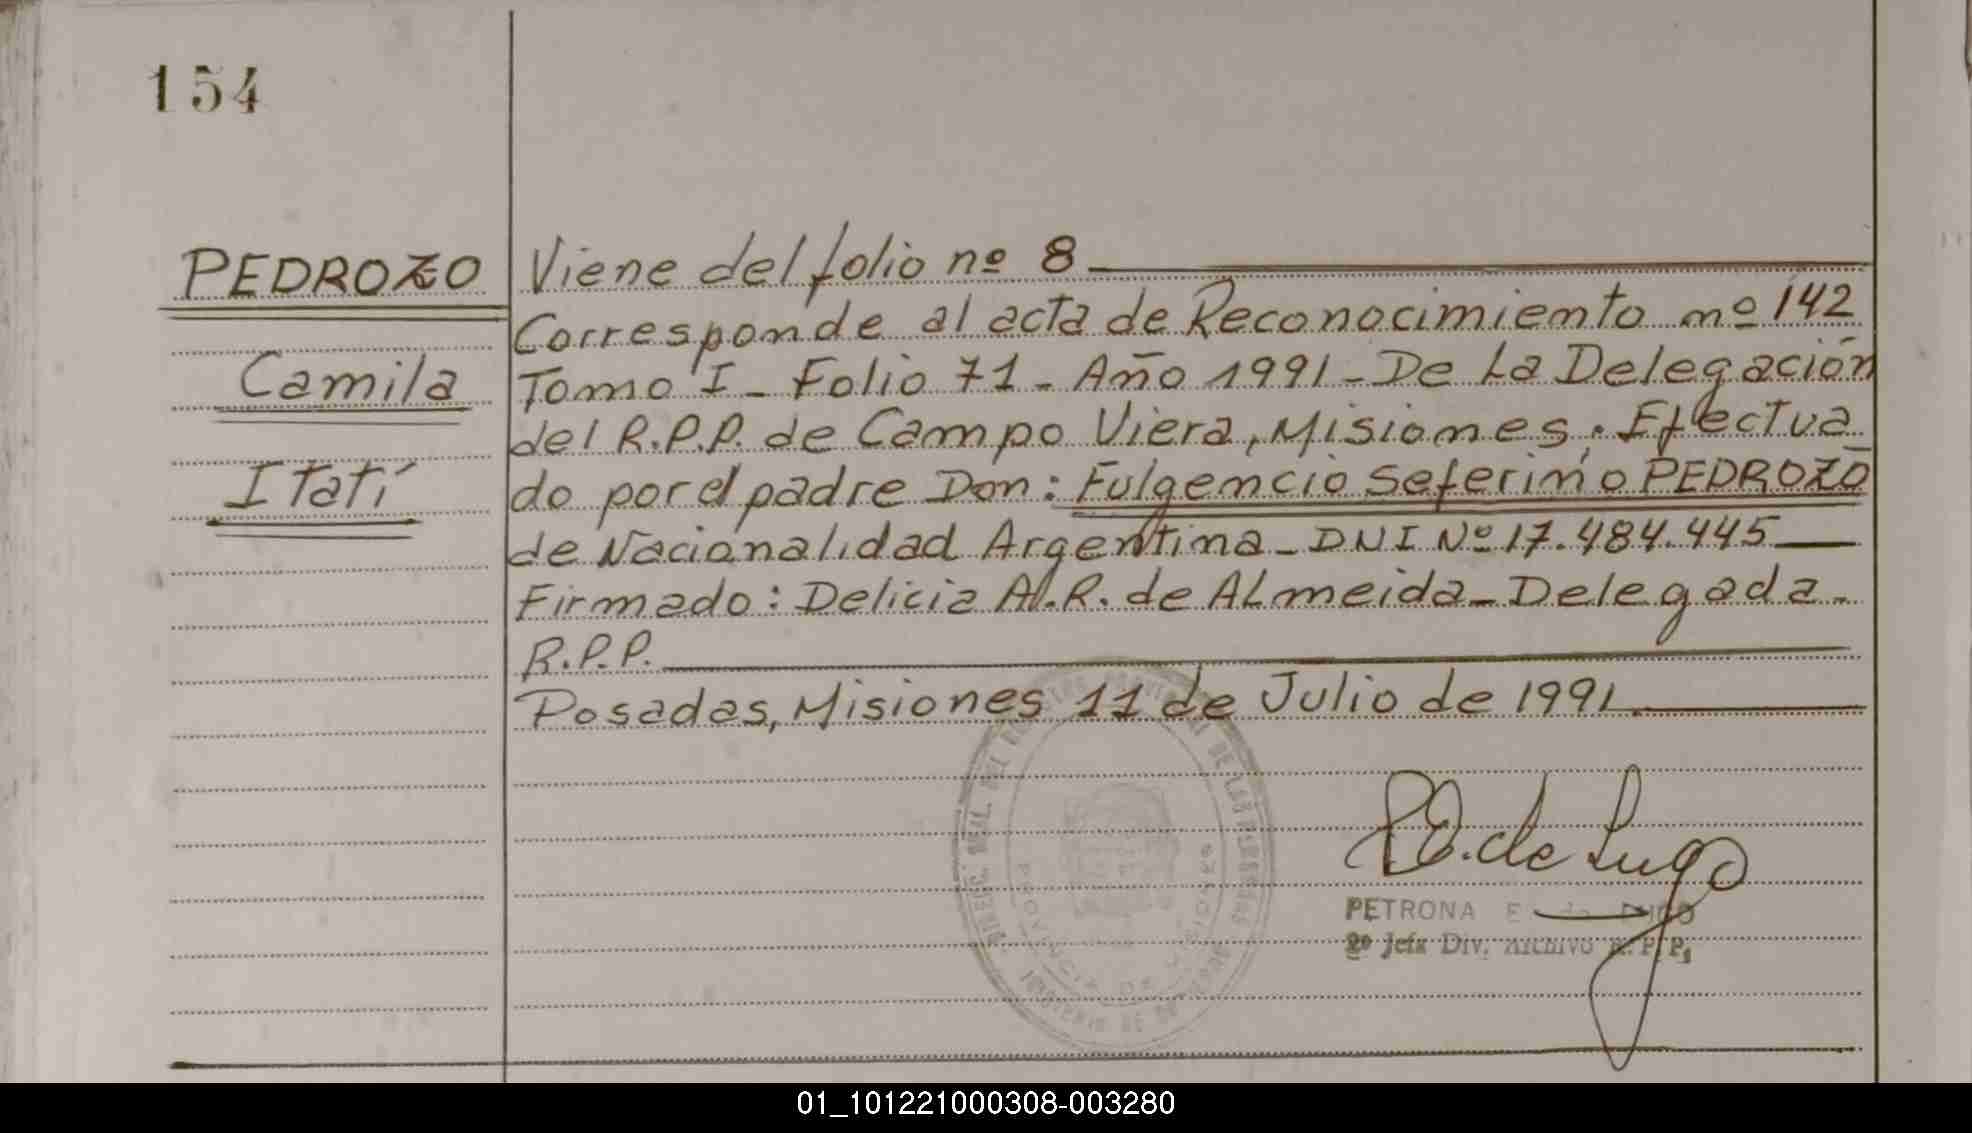 154
PEDROZO
Camila
Itatí
Viene del folio nº 8
Corresponde al acta de Reconocimiento nº 142
Tomo I - Folio 71 - Año 1991 - De La Delegación
del R.P.P. de Campo Viera, Misiones. Efectua
do por el padre Don: Fulgencio Seferino PEDROZO
de Nacionalidad Argentina - DNI Nº 17.484.445
Firmado: Delicia A.R. de ALmeida - Delegada -
R.P.P.
Posadas, Misiones 11 de Julio de 1991.
de Lugo
PETRONA E. de LUGO
2º Jefa Div. Archivo R.P.P.
PROVINCIA DE MISIONES
01_101221000308-003280